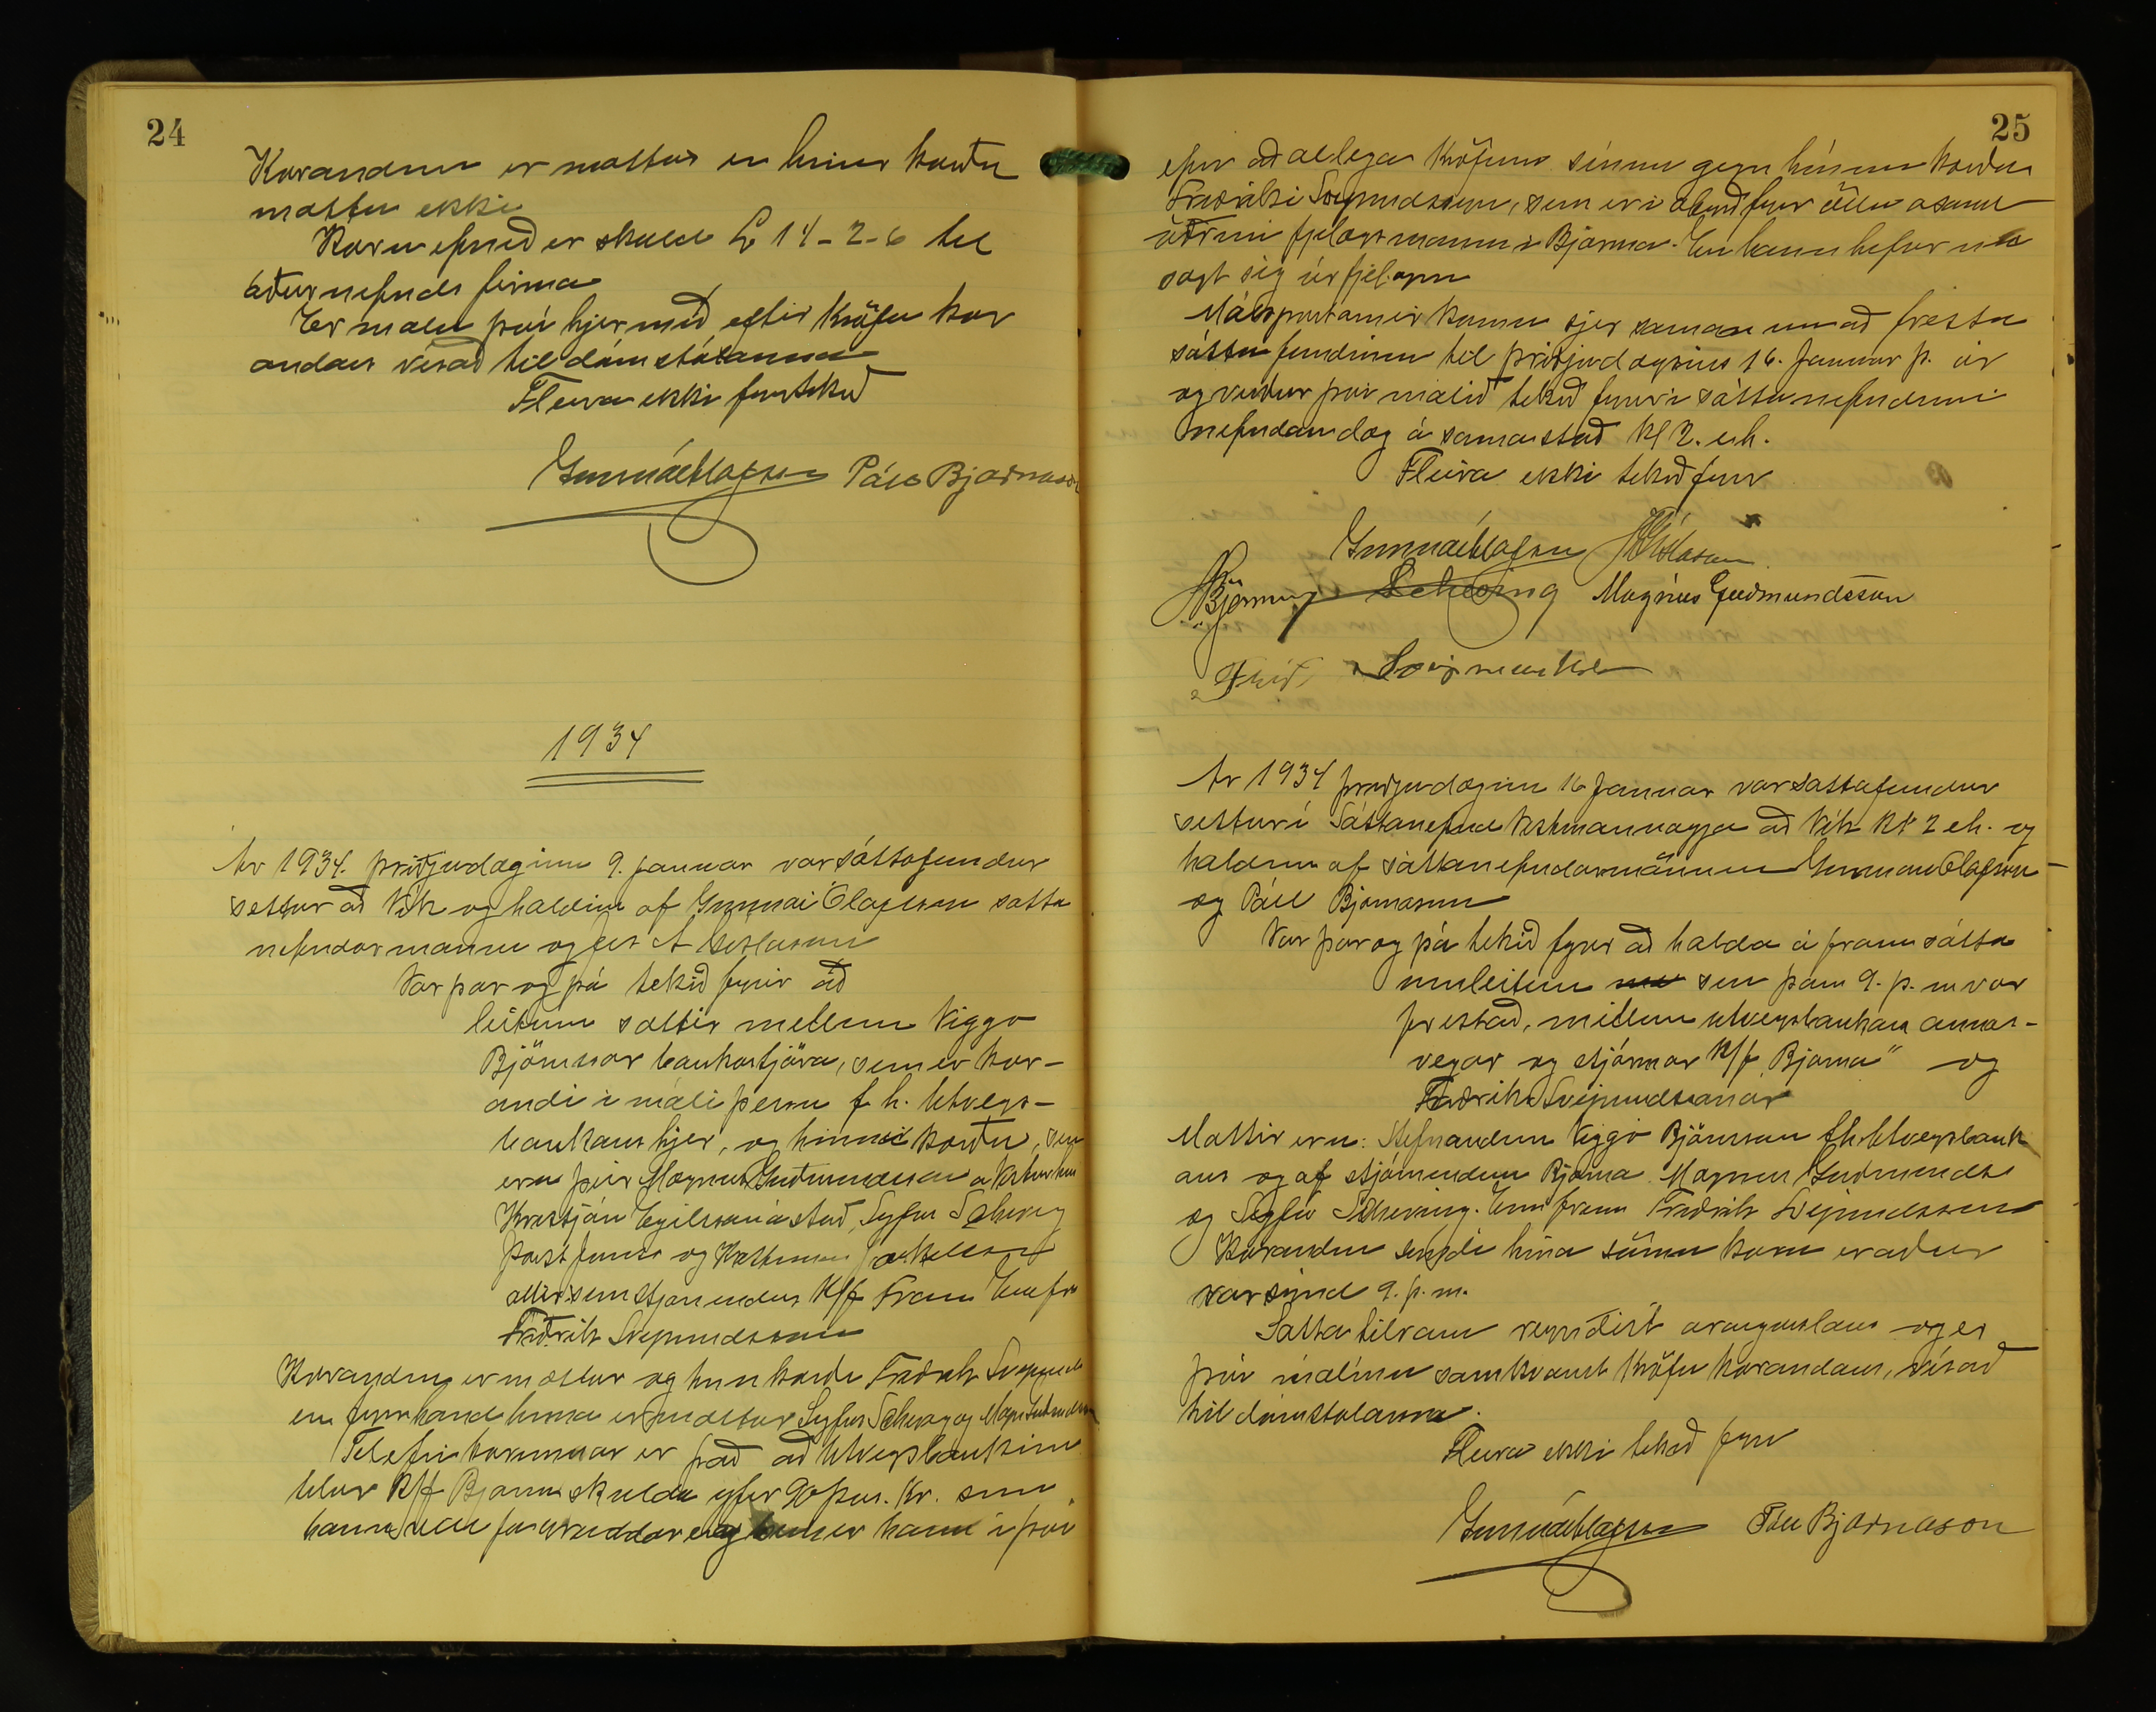 24
Kærandinn er mættur en hinir kærðu
mættu ekki
Kæruefnið er skuld £ 14-2-6 til
áðurnefnds firma
Er málinu því hjer með eftir kröfu kær
andans vísað til dómstólanna
Fleira ekki fyrirtekið
Gunnar Ólafsson Páll Bjarnason
1934
Ár 1934. þriðjudaginn 9. janúar var sáttafundur
settur að Vík og haldinn af Gunnari Ólafsson sátta
nefndarmanni og Jes A Gíslasyni
Var þar og þá tekið fyrir að
leitum sættir millum Viggo
Björnsson bankastjóra, sem er kær-
andi í máli þessu f. h. Útvegs-
bankans hjer, og hinna kærðu, sem
eru þeir Magnús Guðmundsson á Vesturhús
Kristján Egilsson á stað, Sigfús Scheving
og
allir sem stjórnendur H/f Fram Ennfr
Friðrik Svipmundsson
Kærandinn er mættur og hinn kærði Friðrik Svipmunds
en fyrir hönd hinna er mættur Sigfús Scheving og Magn Guðmundsson
Tilefni kærunnar er það að Útvegsbankinn
telur H/f Bjarma skulda yfir 90 þús. kr. sem
hann vill fá og er hann í því
25
efni að allega kröfum sínum gegn hinum kærða
Friðriki Svipmundssyni, sem er í ábyrgð fyrir öllu ásamt
öðrum fjelagsmönnum í Bjarma. En hann hefur nú
sagt sig úr fjelaginu
Málspartarnir komu sjer saman um að fresta
sáttafundinum til þriðjudagsins 16. Janúar þ. ár
og verður því málið tekið fyrir í sáttanefndinni
nefndan dag á sama stað kl 2. e.h.
Fleira ekki tekið fyrir
Gunnar Ólafsson JAGíslason
Scheving Magnús Guðmundsson
Frið Svipmundss
Ár 1934 þriðjudaginn 16 Janúar var sáttafundur
settur í Sáttanefnd Vestmannaeyja að Vík kl 2 eh. og
haldinn af sáttanefndarmönnum Gunnari Ólafssyni
og Páll Bjarnasyni
Var þar og þá tekið fyrir að halda áfram sátta
umleitun sem þann 9. þ. m var
frestað, millum Útvegsbankans annars-
vegar og stjórnar H/f "Bjarma" og
Friðriks Svipmundssonar
Mættir eru: Stefnandinn Viggó Björnsson fh. Útvegsbank
ans og af stjórnendum Bjarma Magnús Guðmundss
og Sigfús Scheving. Ennfremur Friðrik Svipmundsson
Kærandinn sýndi hina sömu kæru er áður
var sýnd 9. þ. m.
Sáttatilraun reyndist árangurslaus og er
því málinu samkvæmt kröfu kærandans, vísað
til dómstólanna.
Fleira ekki tekið fyrir
Gunnar Ólafsson Páll Bjarnason